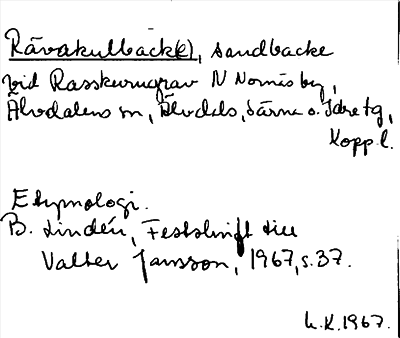 Rävakulbäck(e), sandbacke
vid Rasskurugrav N Nornäs by,
Älvdalens sn, Älvdals, Särna o. Idre tg,
Kopp. l.
Etymologi.
B. Lindén, Festskrift till
Valter Jansson, 1967, s. 37.
L.K. 1967.